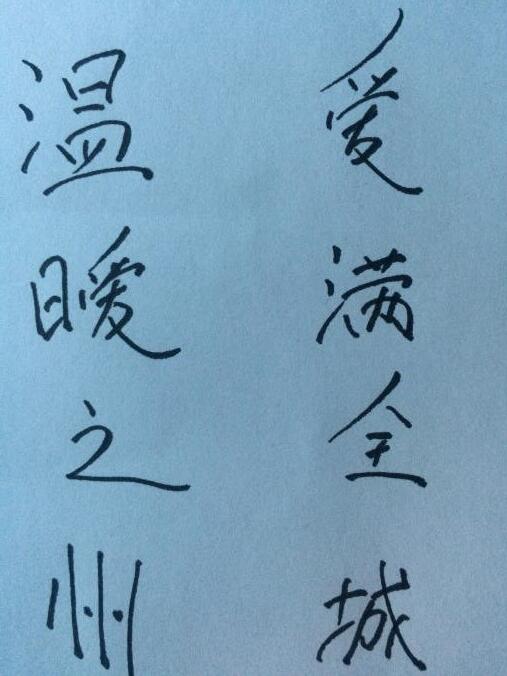 爱满全城
温暖之州